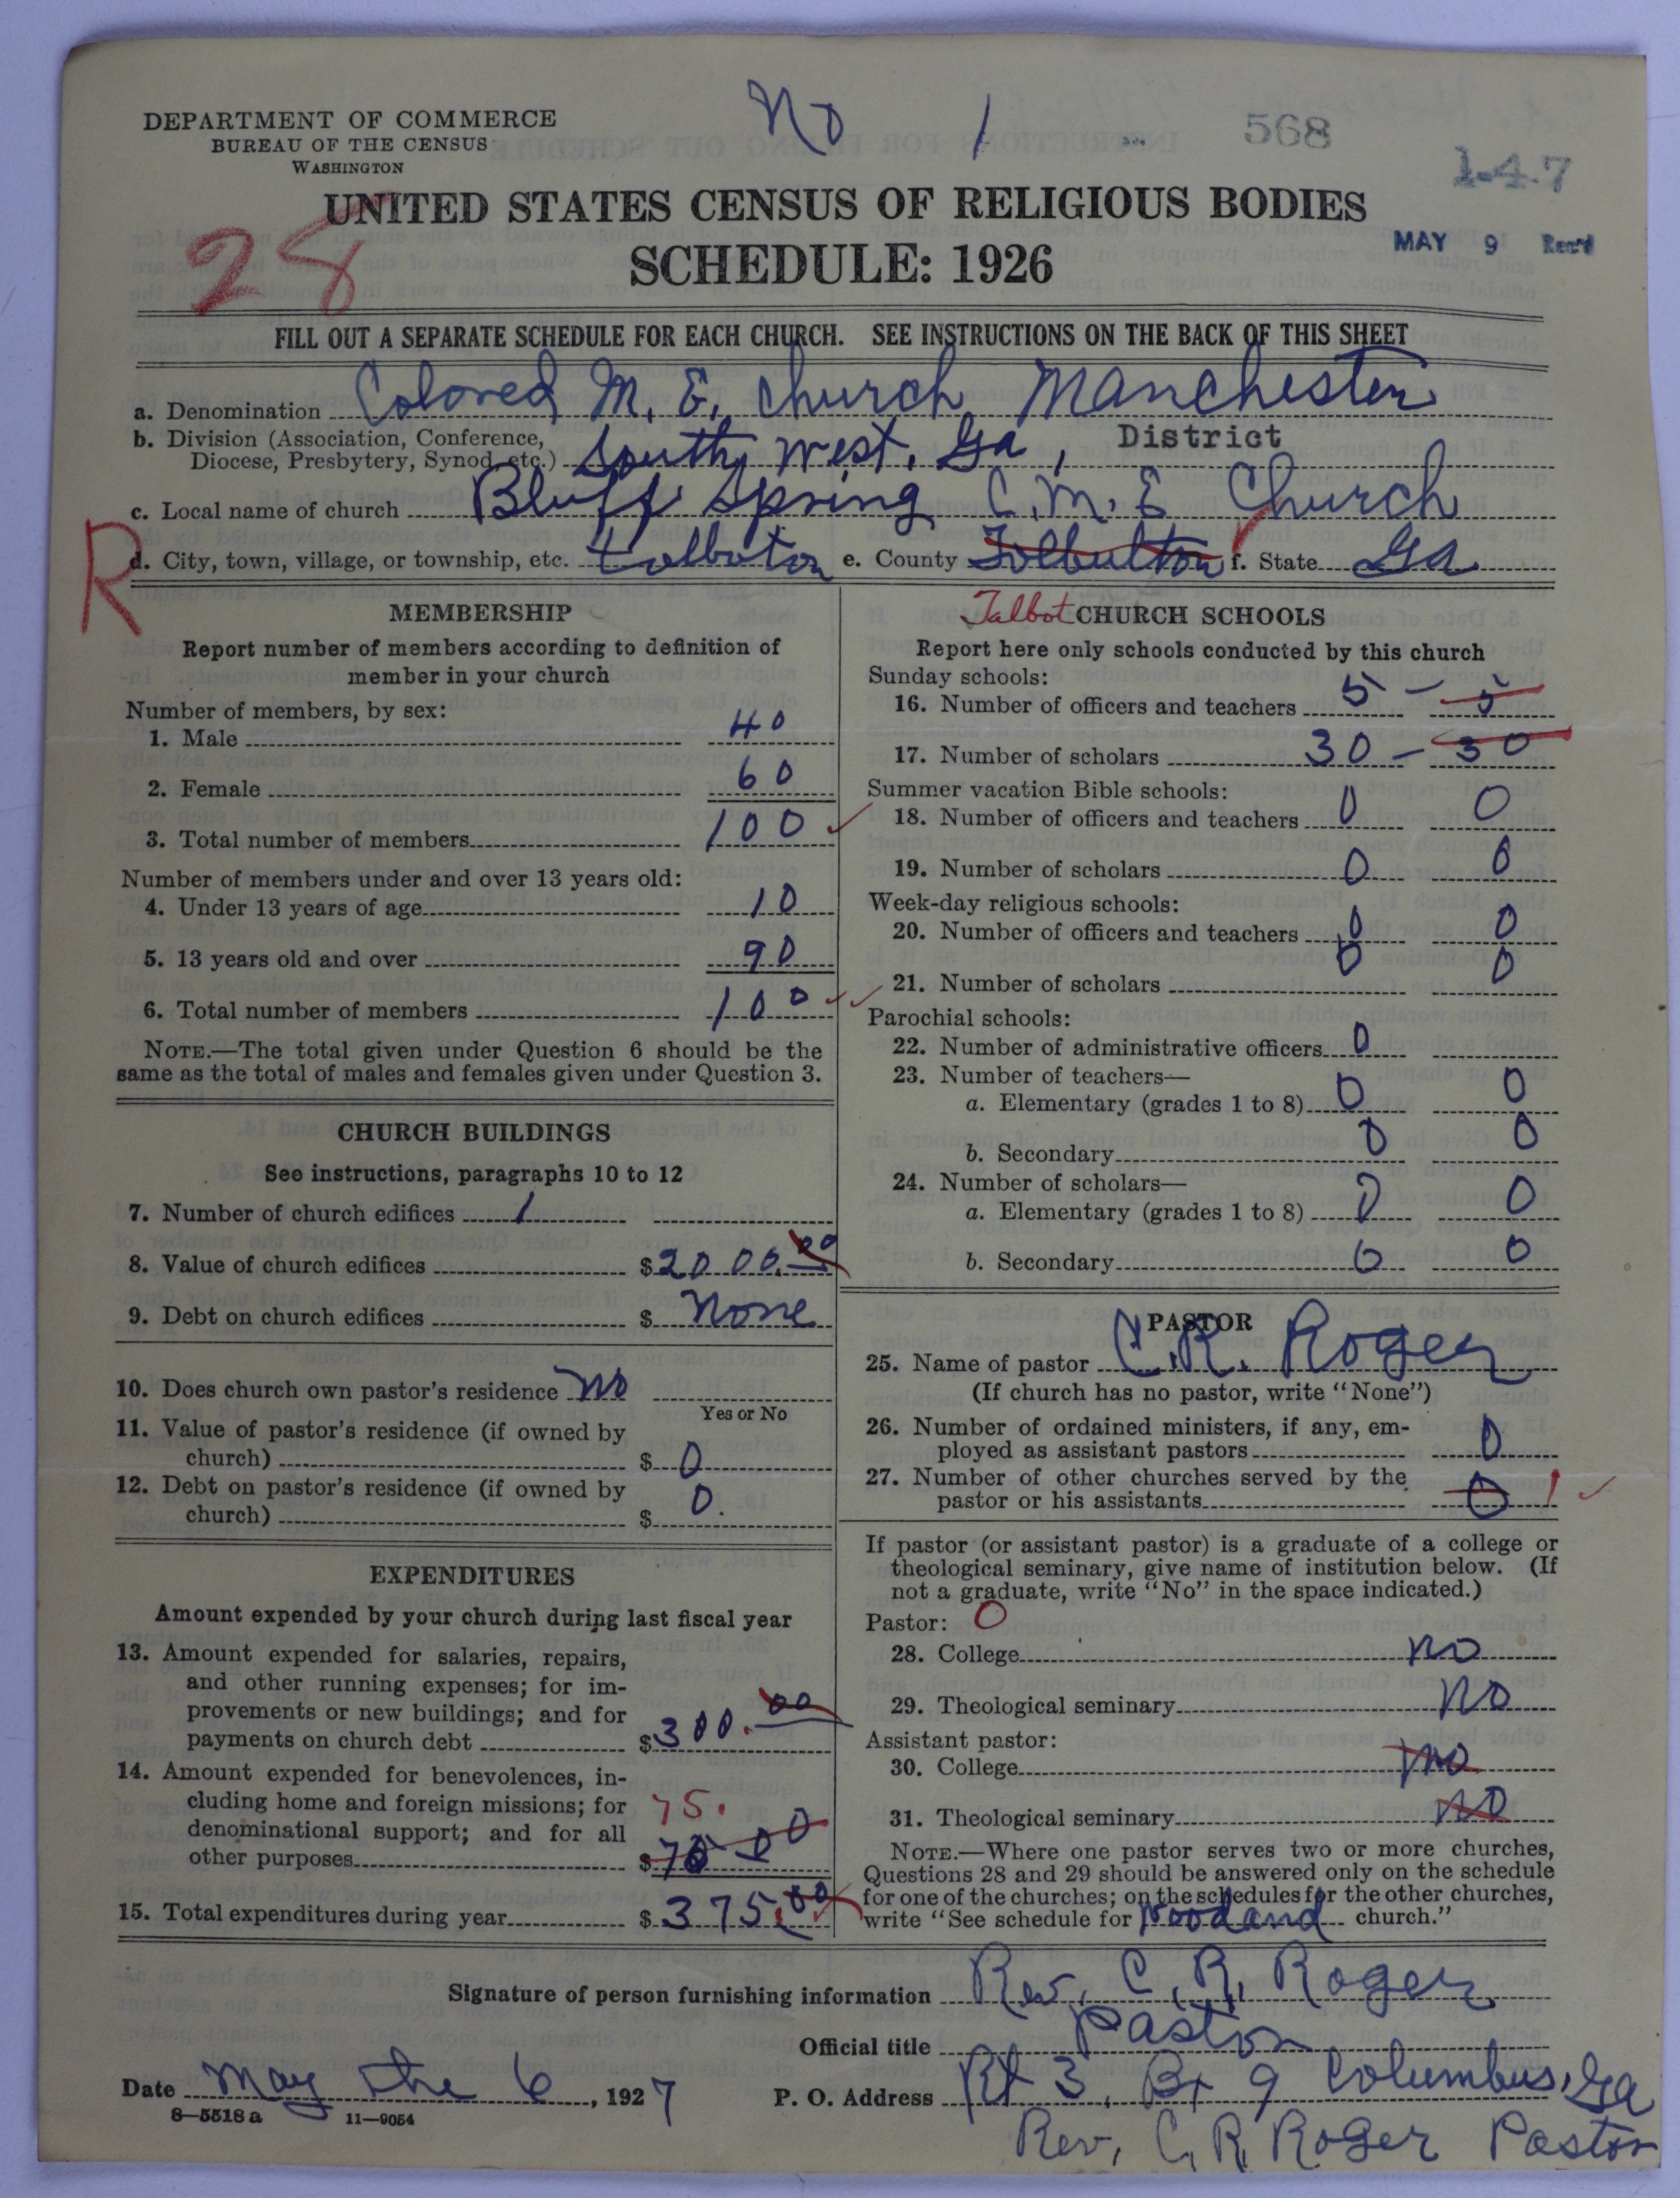 No 1
568
1-4.7
DEPARTMENT OF COMMERCE
BUREAU OF THE CENSUS
WASHINGTON
UNITED STATES CENSUS OF RELIGIOUS BODIES
28
SCHEDULE: 1926
MAY 9 Rec'd
FILL OUT A SEPARATE SCHEDULE FOR EACH CHURCH. SEE INSTRUCTIONS ON THE BACK OF THIS SHEET
a. Denomination Colored M. E. Church Manchester
b. Division (Association, Conference, Diocese, Presbytery, Synod, etc.) South West, Ga, District
c. Local name of church Bluff Spring C. M. E Church
R
d. City, town, village, or township, etc. Talboton e. County Tolbulton f. State Ga
Talbot
MEMBERSHIP
Report number of members according to definition of
member in your church
Number of members, by sex:
1. Male 40
2. Female 60
3. Total number of members 100
Number of members under and over 13 years old:
4. Under 13 years of age 10
5. 13 years old and over 90
6. Total number of members 100
NOTE.—The total given under Question 6 should be the
same as the total of males and females given under Question 3.
CHURCH BUILDINGS
See instructions, paragraphs 10 to 12
7. Number of church edifices 1
8. Value of church edifices $2000.00
9. Debt on church edifices $ None
10. Does church own pastor's residence No
Yes or No
11. Value of pastor's residence (if owned by
church) $ 0
12. Debt on pastor's residence (if owned by
church) $ 0.
EXPENDITURES
Amount expended by your church during last fiscal year
13. Amount expended for salaries, repairs,
and other running expenses; for im-
provements or new buildings; and for
payments on church debt $300.00
14. Amount expended for benevolences, in-
cluding home and foreign missions; for 75.
denominational support; and for all
other purposes $75 00
15. Total expenditures during year $ 375.00
CHURCH SCHOOLS
Report here only schools conducted by this church
Sunday schools:
16. Number of officers and teachers 5 - 5
17. Number of scholars 30 - 30
Summer vacation Bible schools:
18. Number of officers and teachers 0 0
19. Number of scholars 0 0
Week-day religious schools:
20. Number of officers and teachers 0 0
21. Number of scholars 0 0
Parochial schools:
22. Number of administrative officers 0
23. Number of teachers—
a. Elementary (grades 1 to 8) 0 0
b. Secondary 0 0
24. Number of scholars—
a. Elementary (grades 1 to 8) 0 0
b. Secondary 0 0
PASTOR
25. Name of pastor C. R. Roger
(If church has no pastor, write "None")
26. Number of ordained ministers, if any, em-
ployed as assistant pastors 0
27. Number of other churches served by the
pastor or his assistants 0 1
If pastor (or assistant pastor) is a graduate of a college or
theological seminary, give name of institution below. (If
not a graduate, write "No" in the space indicated.)
Pastor: 0
28. College No
29. Theological seminary No
Assistant pastor:
30. College No
31. Theological seminary No
NOTE.—Where one pastor serves two or more churches,
Questions 28 and 29 should be answered only on the schedule
for one of the churches; on the schedules for the other churches,
write "See schedule for Woodand church."
Signature of person furnishing information Rev. C. R. Roger
Official title Pastor
Date May the 6, 1927 P. O. Address Rt 3, Bx 9 Columbus, Ga
8—5518 a 11—9054
Rev, C, R Roger Pastor